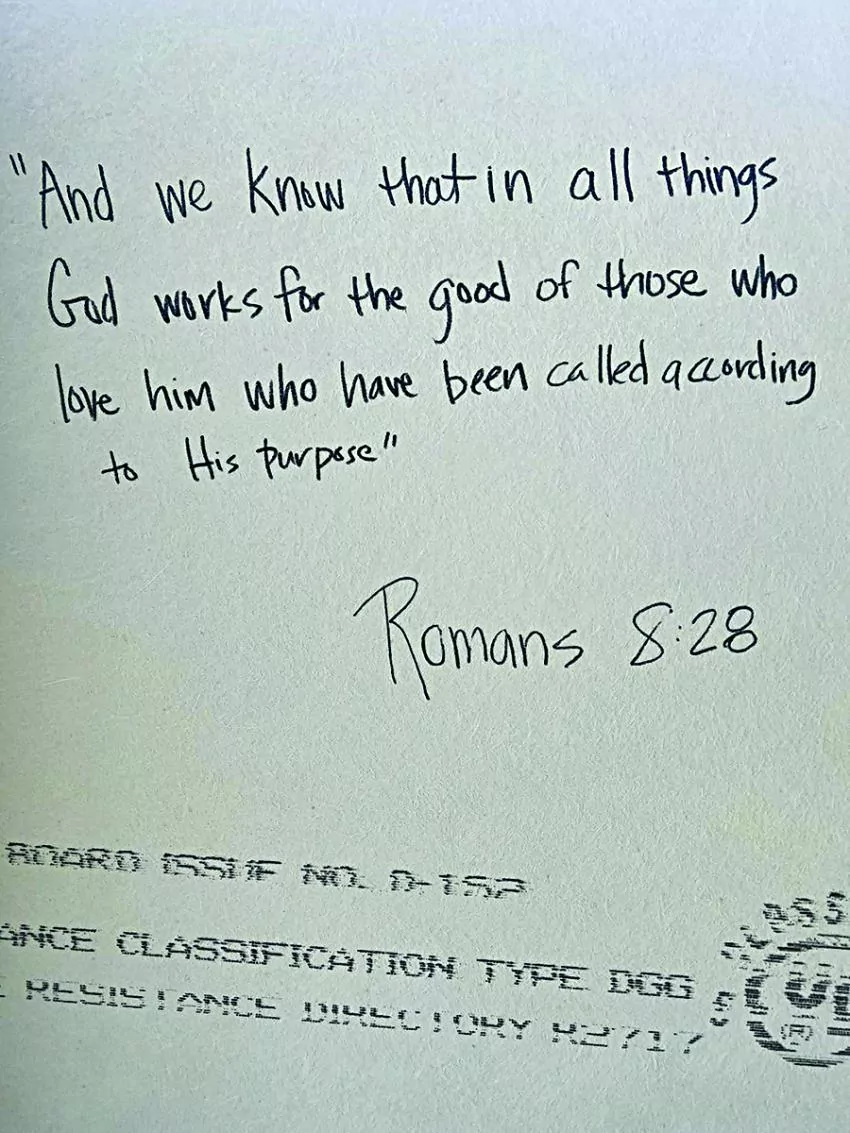 "And we know that in all things
God works for the good of those who
love him who have been called according
to His purpose"
Romans 8:28
BOARD ISSUE NO. D-152
ANCE CLASSIFICATION TYPE DGG
E RESISTANCE DIRECTORY R2717
ASS
(R)